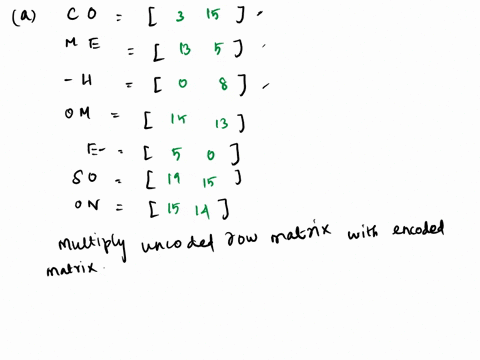 (a) C O = [ 3 15 ]
M E = [ 13 5 ]
- H = [ 0 8 ]
O M = [ 15 13 ]
E- = [ 5 0 ]
S O = [ 19 15 ]
O N = [ 15 14 ]
Multiply uncoded row matrix with encoded
matrix.